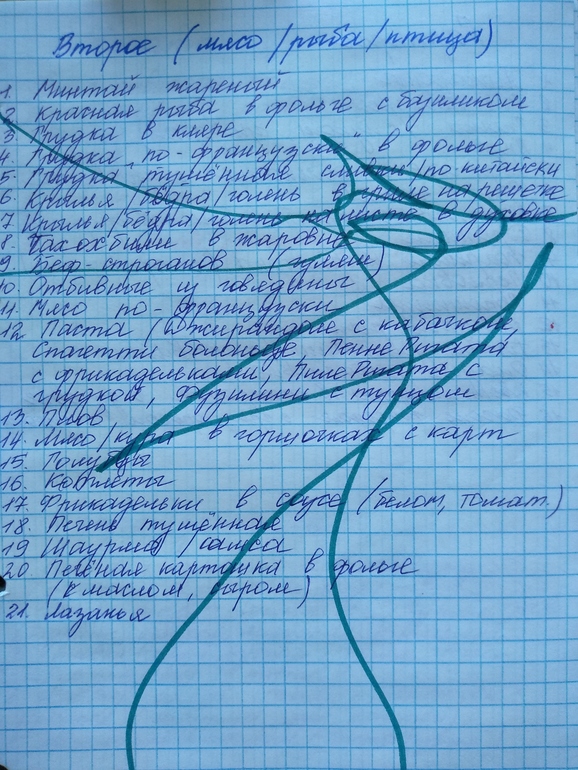 Второе (мясо/рыба/птица)
1. Минтай жареный
2. Красная рыба в фольге с базиликом
3. Грудка в кляре
4. Грудка "по-французски" в фольге
5. Грудка тушённая сливки/по-китайски
6. Крылья/бёдра/голень в гриле на решетке
7. Крылья/бёдра/голень в духовке
8. Чахохбили в жаровне
9. Беф-строганов (гуляш)
10. Отбивные из говядины
11. Мясо по-французски
12. Паста ( с кабачком,
Спагетти болоньезе, Пенне Ригата
с фрикадельками, Пине Ригата с
грудкой, Фузилини с тунцом
13. Плов
14. Мясо/кура в горшочках с карт
15. Голубцы
16. Котлеты
17. Фрикадельки в соусе (белом, томат.)
18. Печень тушённая
19 Шаурма/самса
20. Печёная картошка в фольге
(с маслом, сыром)
21. Лазанья